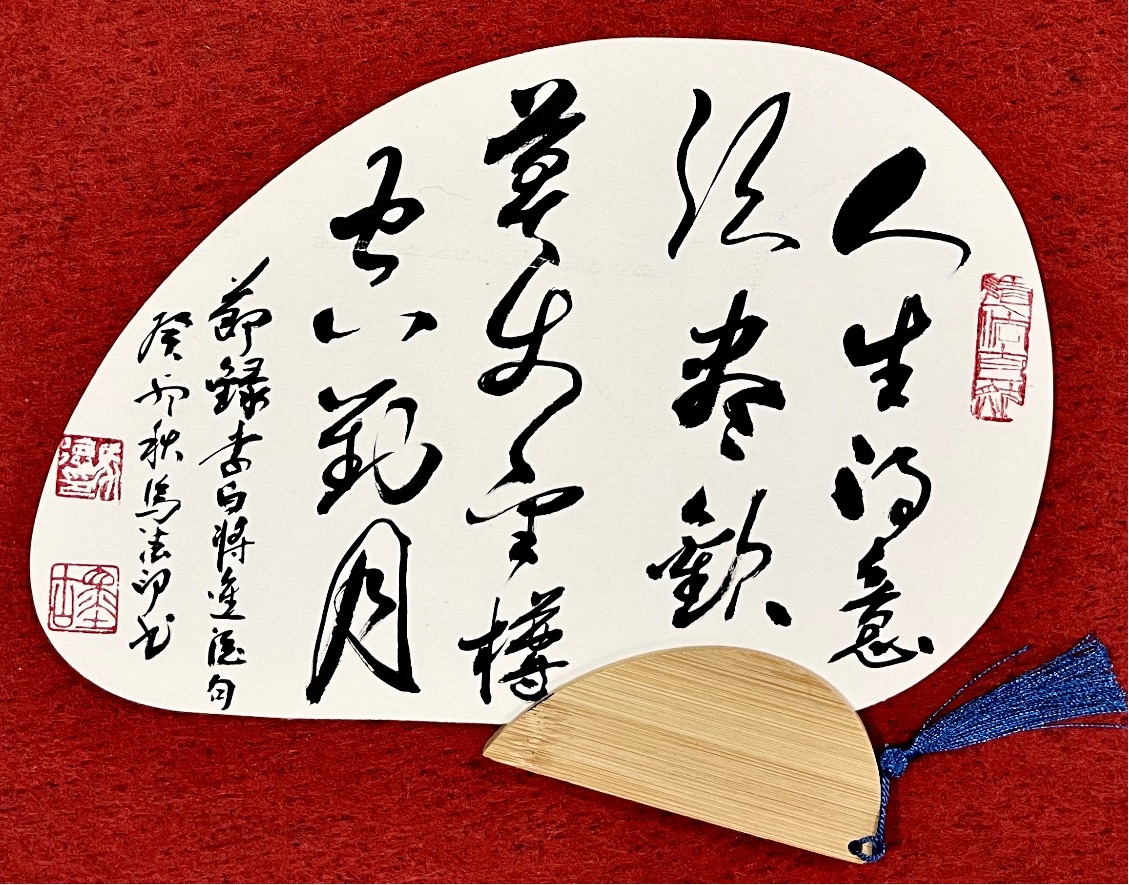 人生得意
須盡歡
莫使金樽
空對月
節錄李白將進酒句
癸卯秋馬法印书